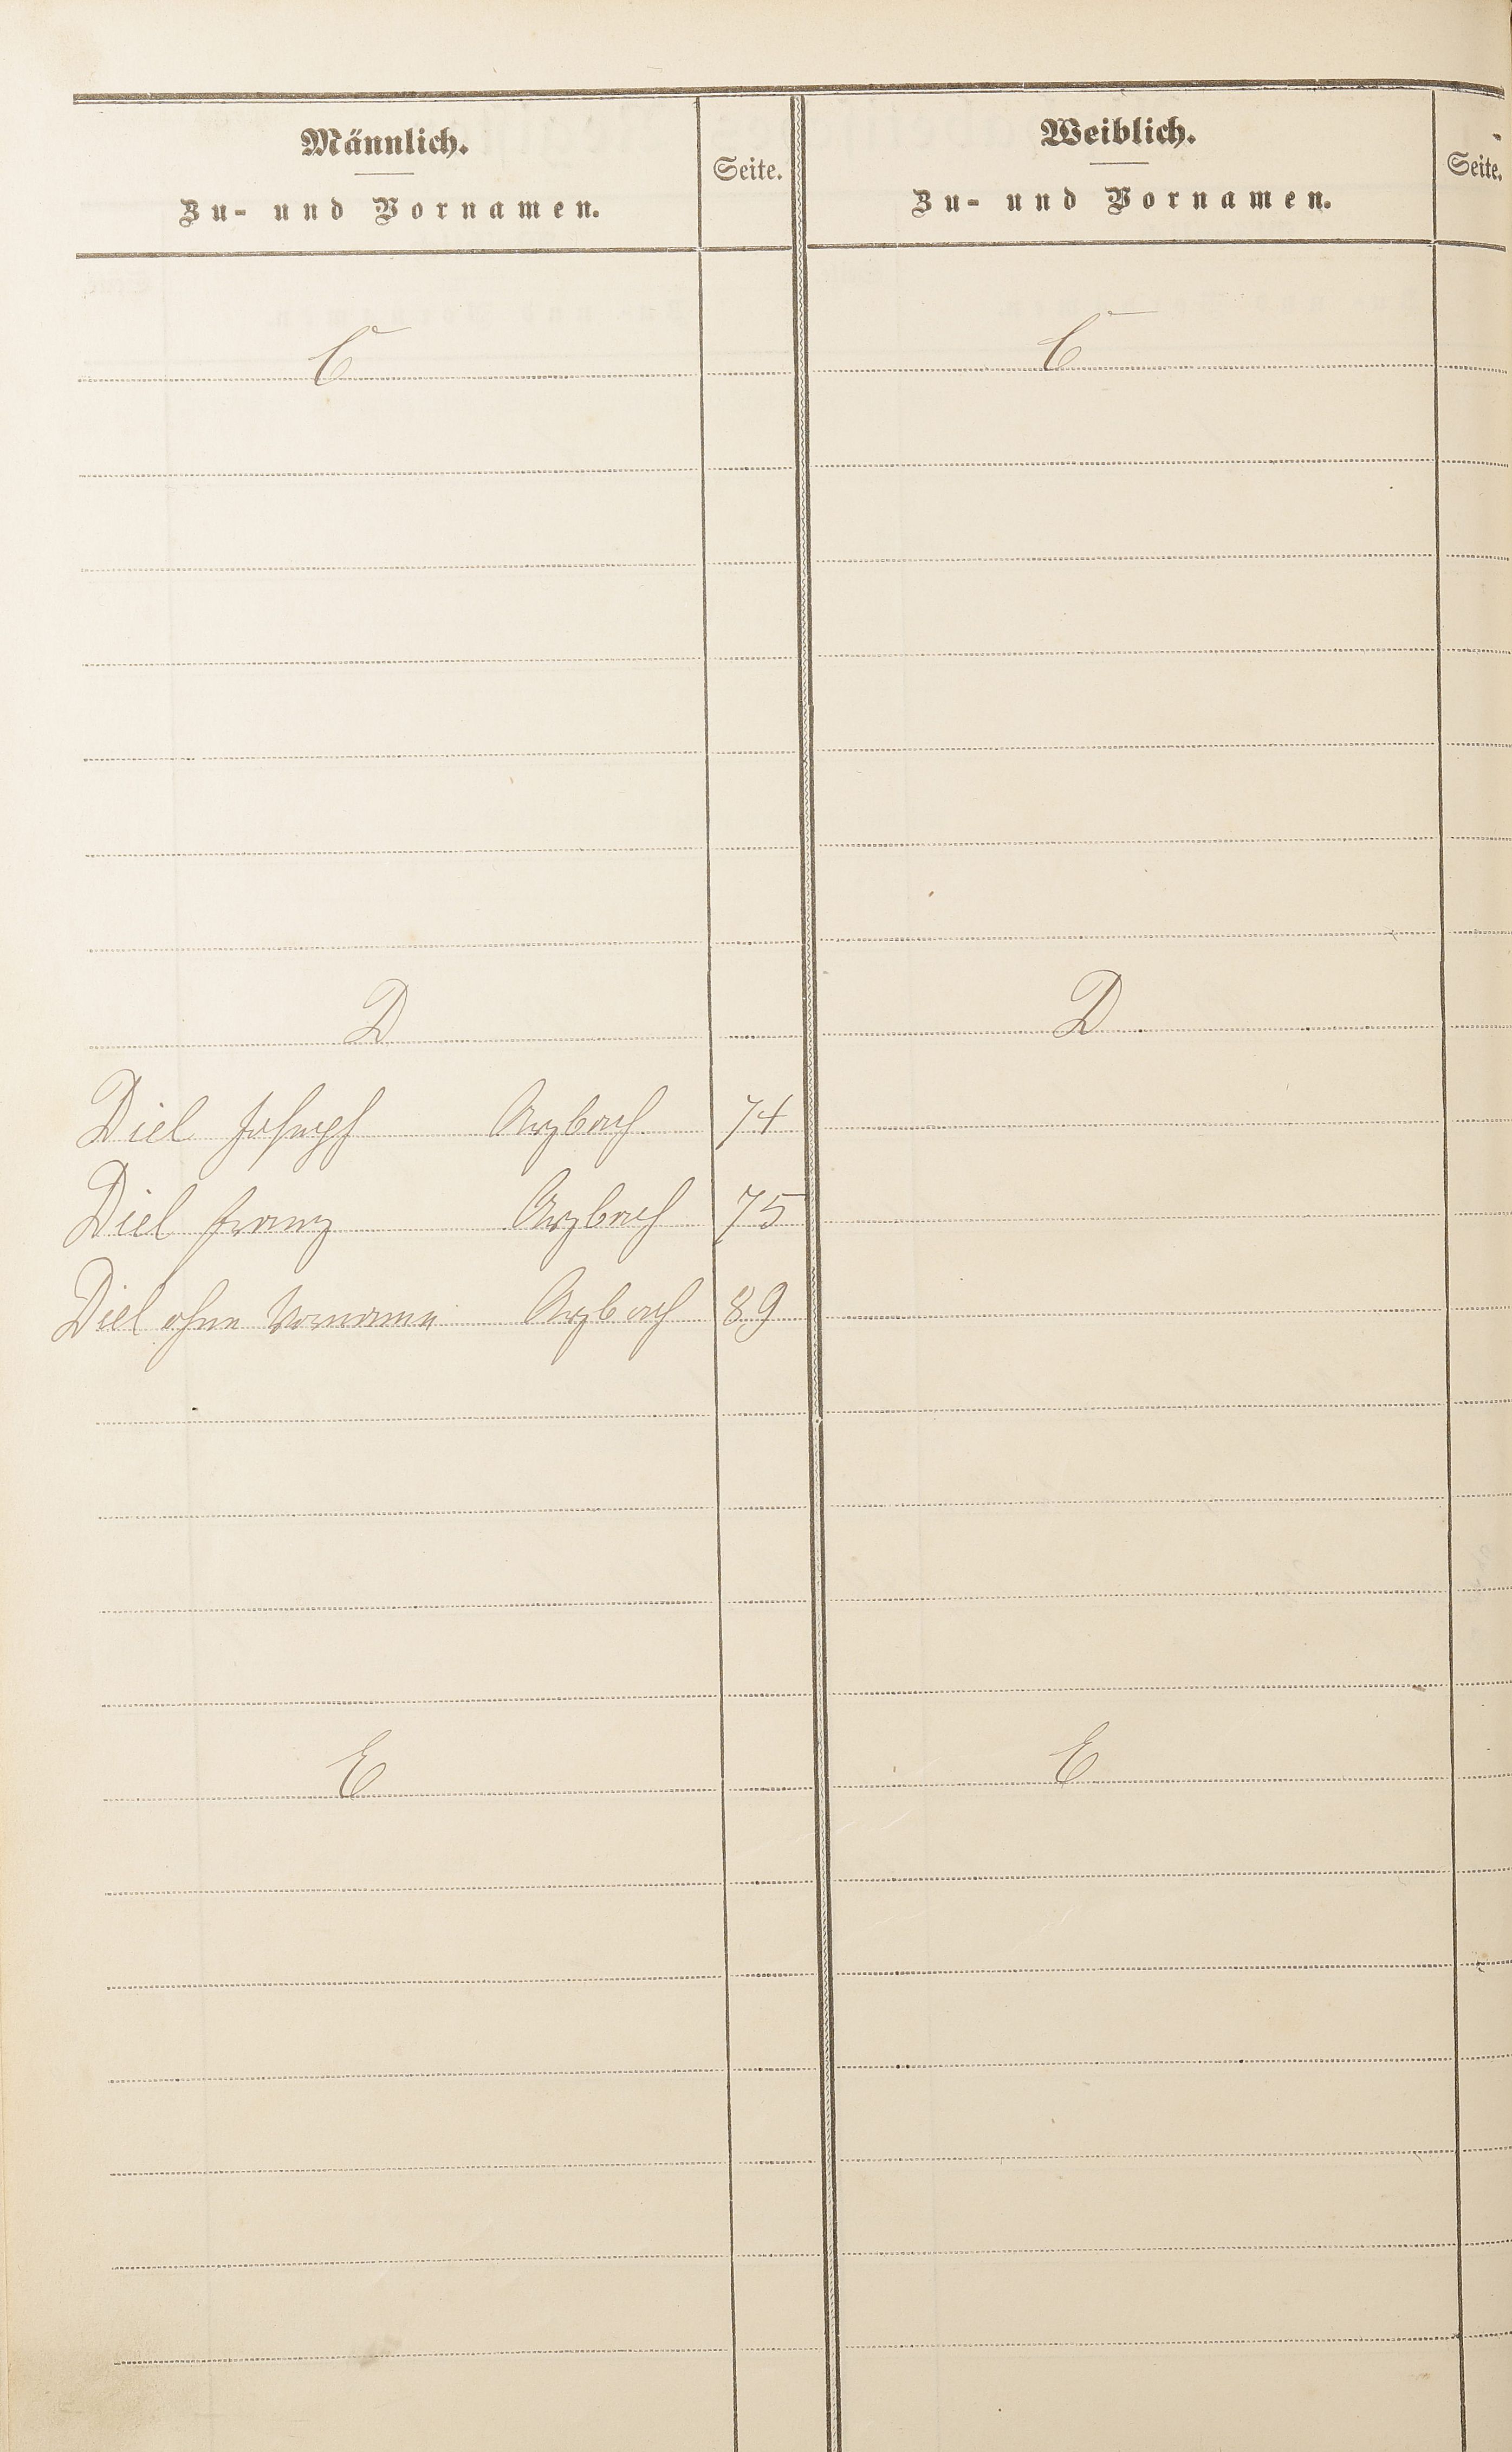 Männlich.
Zu- und Vornamen.
Seite.
Weiblich.
Zu- und Vornamen.
Seite.
C
C
D
D
Diel Joseph Arzbach 74
Diel Franz Arzbach 75
Diel ohne Vorname Arzbach 89
E
E